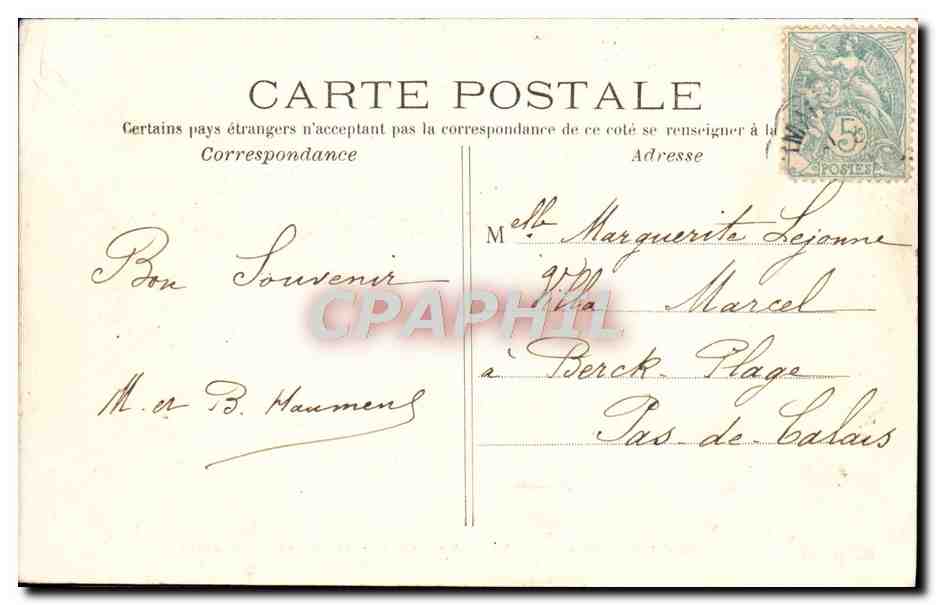 CARTE POSTALE
Certains pays étrangers n'acceptant pas la correspondance de ce coté se renseigner à la
Correspondance
Adresse
5
POSTES
Bon Souvenir
M. et B.
Melle Marguerite Lejonne
Villa Marcel
à Berck-Plage
Pas-de-Calais
CPAPHIL